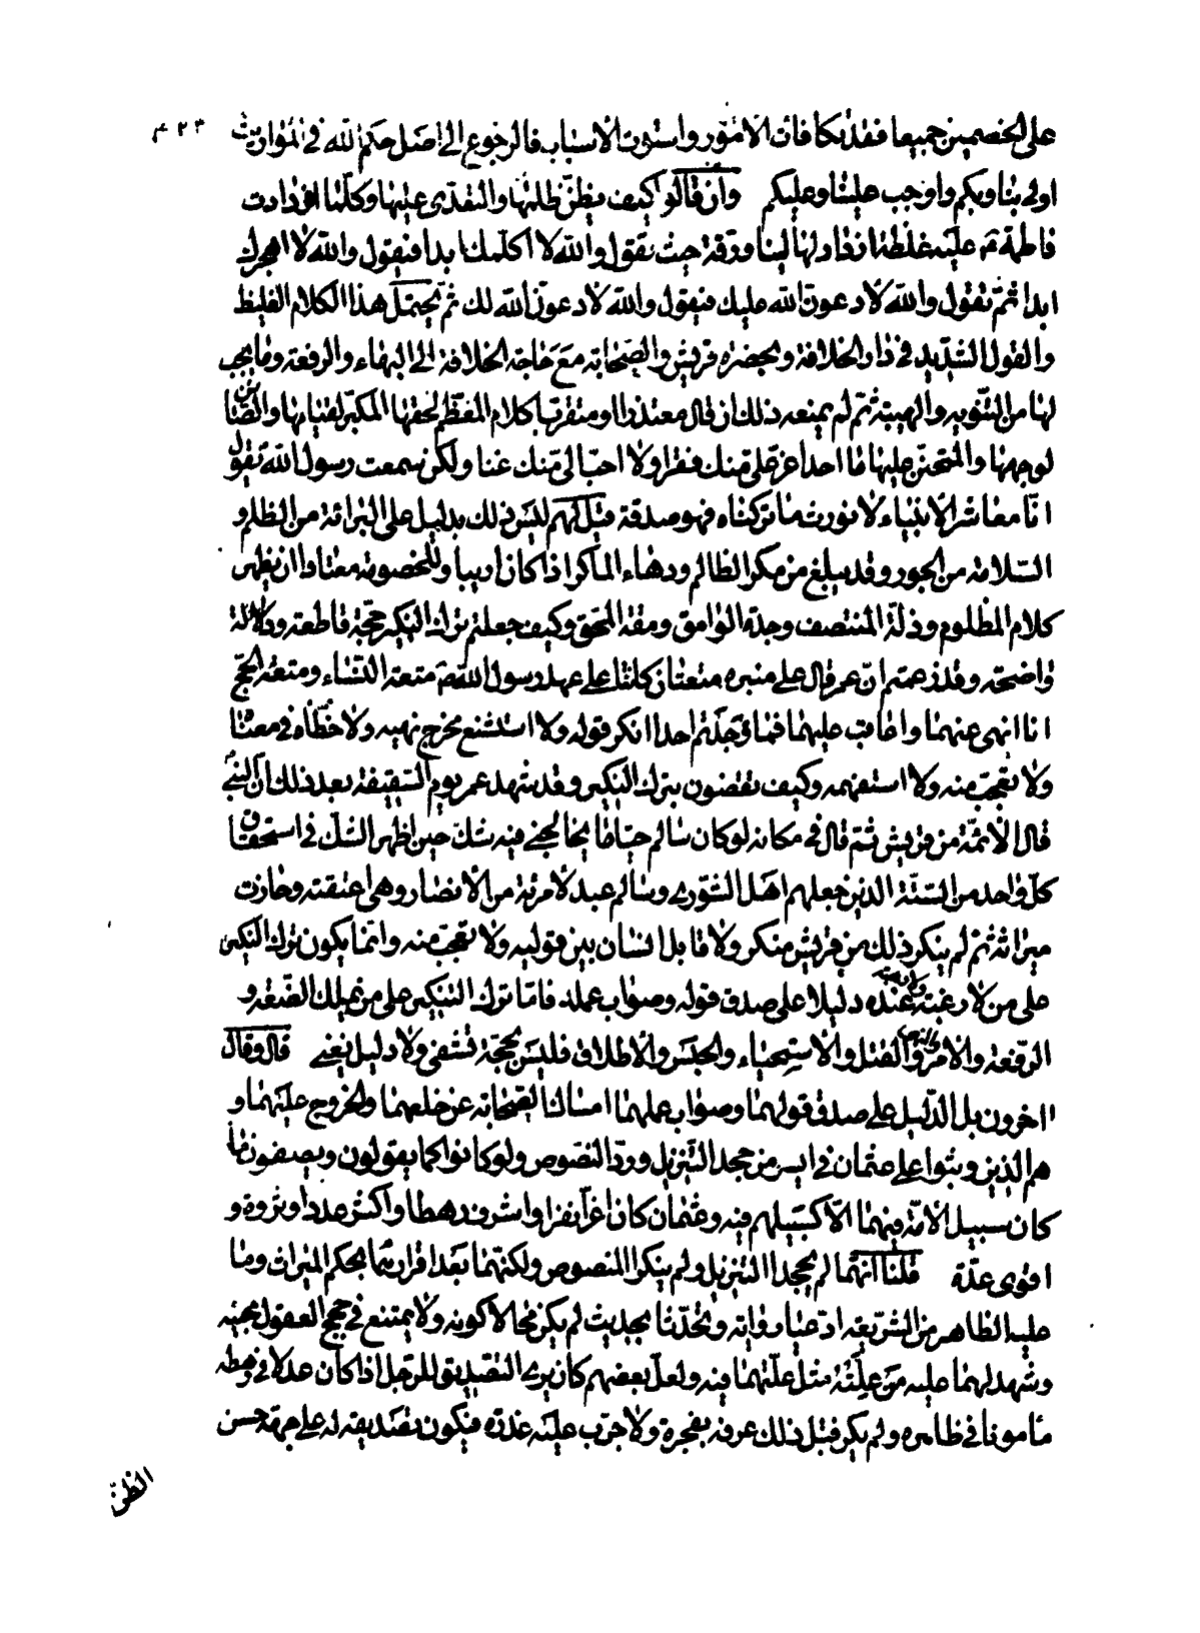 على الخصمين جميعا فقد تكافات الامور واستوت الاسباب فالرجوع الى اصل حكم الله في المواريث ٤٢٣
اولى بنا وبكم واوجب علينا وعليكم وان قالوا كيف يظن ظلمها والتعدى عليها وكلما ازدادت
فاطمة ع عليه غلظة ازداد لها لينا ورقة حيث تقول والله لا اكلمك ابدا فيقول والله لا اهجرك
ابدا ثم تقول والله لادعون الله عليك فيقول والله لادعون الله لك ثم يحتمل هذا الكلام الغليظ
والقول الشديد في دار الخلافة وبحضرة قريش والصحابة مع حاجة الخلافة الى البهاء والرفعة وما يجب
لها من التنويه والهيبة ثم لم يمنعه ذلك ان قال معتذرا او متقربا كلام المعظم لحقها المكبر لمقامها والصائن
لوجهها والمتحنن عليها ما احد اعز على منك فقرا ولا احب الى منك غنا ولكن سمعت رسول الله يقول
انا معاشر الانبياء لا نورث ما تركناه فهو صدقة قيل لهم ليس ذلك بدليل على البرائة من الظلم و
السلامة من الجور وقد يبلغ من مكر الظالم ودهاء الماكر اذا كان اريبا وللخصومة معتادا ان يظهر
كلام المظلوم وذلة المنتصف وحدة الوامق ومقة المحق وكيف جعلتم ترك النكير حجة قاطعة ودلالة
واضحة وقد زعمتم ان عمر قال على منبره متعتان كانتا على عهد رسول الله ص متعة النساء ومتعة الحج
انا انهى عنهما واعاقب عليهما فما وجدتم احدا انكر قوله ولا استشنع مخرج نهيه ولا خطأه في معناه
ولا تعجب منه ولا استفهمه وكيف تقضون بترك النكير وقد شهد عمر يوم السقيفة بعد ذلك ان النبي
قال الائمة من قريش ثم قال في مكانه لو كان سالم حيا ما يخالجنى فيه شك حين اظهر الشك في استحقاق
كل واحد من الستة الذين جعلهم اهل الشورى وسالم عبد لامرئة من الانصار وهى اعتقته وحازت
ميراثه ثم لم ينكر ذلك من قريش منكر ولا قابل انسان بين قوليه ولا تعجب منه وانما يكون ترك النكير
على من لا رغبة ولا رهبة عنده دليلا على صدق قوله وصواب عمله فاما ترك النكير على من يملك الضعة و
الرفعة والامر والنهى والقتل والاستحياء والحبس والاطلاق فليس بحجة تشفى ولا دليل يغنى قال وقال
اخرون بل الدليل على صدق قولهما وصواب عملهما امساك الصحابة عن خلعهما والخروج عليهما و
هم الذين وثبوا على عثمان في ايسر من جحد التنزيل ورد النصوص ولو كانوا كما يقولون ويصفون ما
كان سبيل الامة فيهما الا كسبيلهم فيه وعثمان كان اعز نفرا واشرف رهطا واكثر عددا وثروة و
اقوى عدة قلنا انهما لم يجحدا التنزيل ولم ينكرا المنصوص ولكنهما بعد اقرارهما بحكم الميراث وما
عليه الظاهر من الشريعة ادعيا رواية وتحدثا بحديث لم يكن محالا كونه ولا يمتنع في حجج العقول مجيئه
وشهد لهما عليه من علته مثل علتهما فيه ولعل بعضهم كان يرى التصديق للرجل اذا كان عدلا في رهطه
مأمونا في ظاهره ولم يكن قبل ذلك عرفه بفجرة ولا جرب عليه غدرة فيكون تصديقه له على جهة حسن
الظن